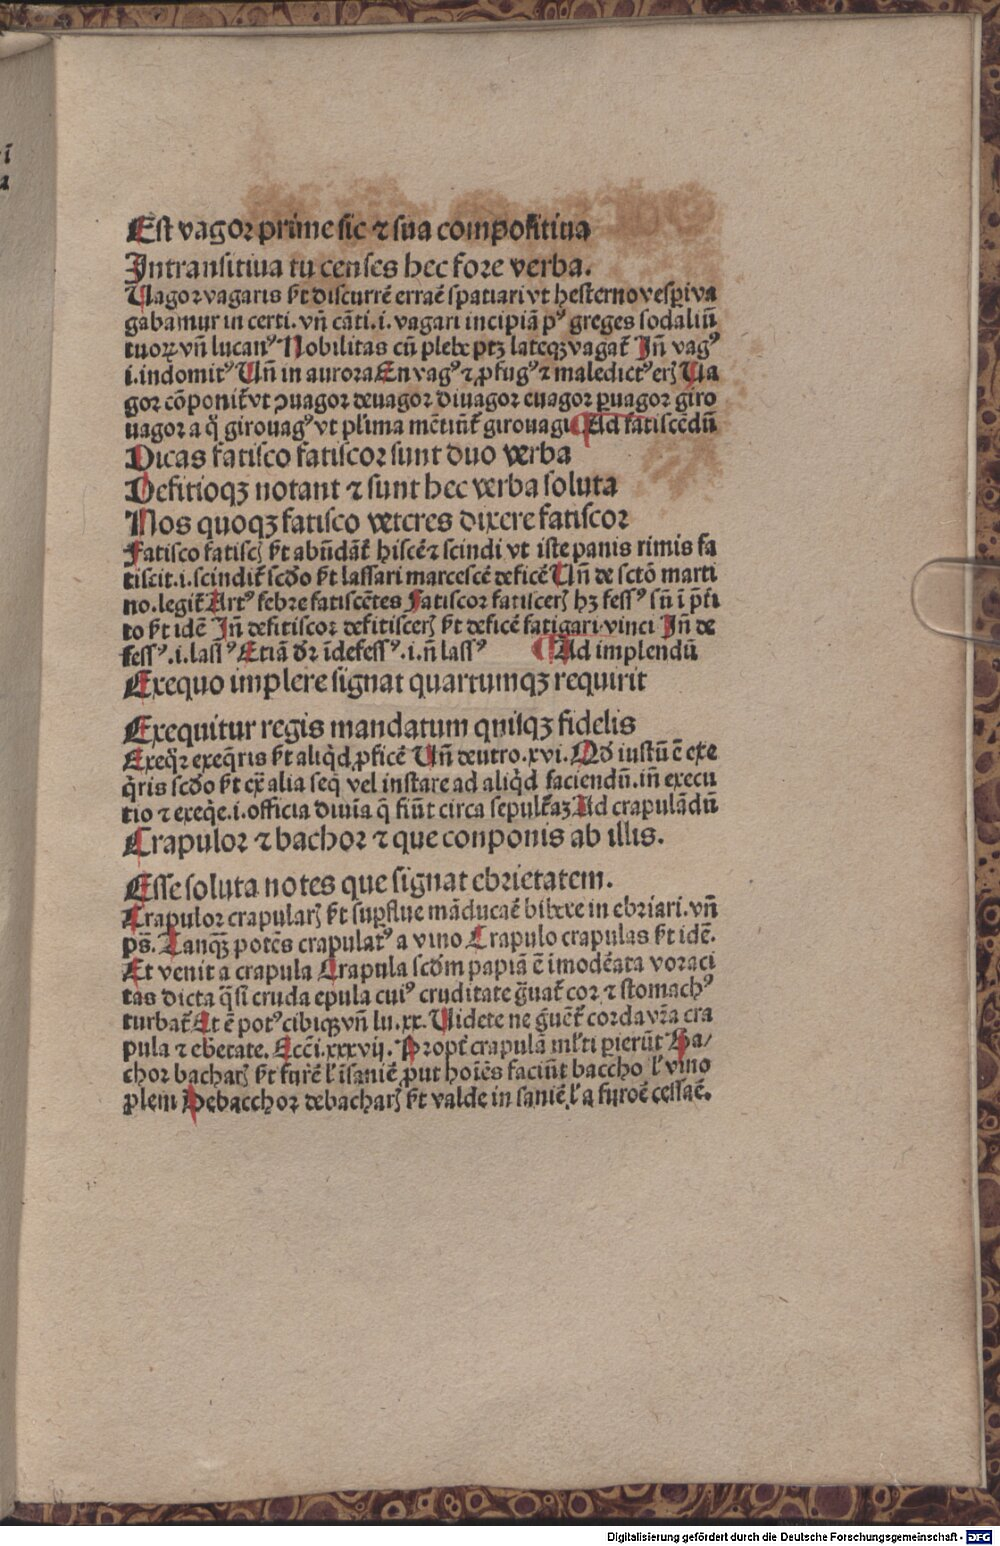 Est vagor prime sic ⁊ sua compositiua
Intransitiua tu censes hec fore verba.
Uagor vagaris ẜt discurrē erraē spatiari vt hesterno vesꝑi va
gabamur in certi. vñ cāti. i. vagari incipiā pꝰ greges sodaliū
tuoꝝ vñ lucanꝰ Nobilitas cū plebe ptꝫ lateqꝫ vagat̄ Iñ vagꝰ
i. indomitꝰ Uñ in aurora En vagꝰ ⁊ ꝓfugꝰ ⁊ maledictꝰ erꝭ Ua
gor cōponit̄ vt ꝯuagor deuagor diuagor euagor ꝑuagor giro
uagor a q̇ girouagꝰ vt pl'ima mētiūt̄ girouagi Ad fatiscēdū
Dicas fatisco fatiscor sunt duo verba
Defitioqꝫ notant ⁊ sunt hec verba soluta
Nos quoqꝫ fatisco veteres dixere fatiscor
Fatisco fatiscꝭ ẜt abūdāt̄ hiscē ⁊ scindi vt iste panis rimis fa
tiscit. i. scindit̄ scd̄o ẜt lassari marcescē deficē Uñ de sctō marti
no. legit̄ Artꝰ febre fatiscētes Fatiscor fatiscerꝭ hꝫ fessꝰ sū ī p̄t̄i
to ẜt idē Iñ defitiscor defitiscerꝭ ẜt deficē fatigari vinci Iñ de
fessꝰ. i. lassꝰ Etiā dr̄ īdefessꝰ. i. ñ lassꝰ ¶ Ad implendū
Exequo implere signat quartumqꝫ requirit
Exequitur regis mandatum quisqꝫ fidelis
Exeq̄r exeq̄ris ẜt aliq̇d ꝓficē Uñ deutro. xvi. Qd̄ iustū ē exe
q̄ris scd̄o ẜt ex̄ alia seq̇ vel instare ad aliq̇d faciendū. iñ execu
tio ⁊ exeq̇e. i. officia diuīa q̄ fiūt circa sepult̄aꝫ Ad crapulādū
Crapulor ⁊ bachor ⁊ que conponis ab illis.
Esse soluta notes que signat ebrietatem.
Crapulor crapularꝭ ẜt suꝑflue māducaē bibere in ebriari. vñ
ps̄. Tanqꝫ̄ potēs crapulatꝰ a vino Crapulo crapulas ẜt idē.
Et venit a crapula Crapula scd̄m papiā ē īmodēata voraci
tas dicta q̄si cruda epula cuiꝰ cruditate g̈uat̄ cor ⁊ stomachꝰ
turbat̄ Et ē potꝰ cibiqꝫ vñ lu. xx. Uidete ne g̈uēt̄ corda vr̄a cra
pula ⁊ ebētate. Eccī. xxxvij. Propt̄ crapulā ml̄ti ꝑierūt Ba/
chor bacharꝭ ẜt furē l' īsaniē ꝓut hoīes faciūt baccho l' vino
plem Debacchor debacharꝭ ẜt valde in saniē, l' a furoē cessaē.
Digitalisierung gefördert durch die Deutsche Forschungsgemeinschaft - DFG